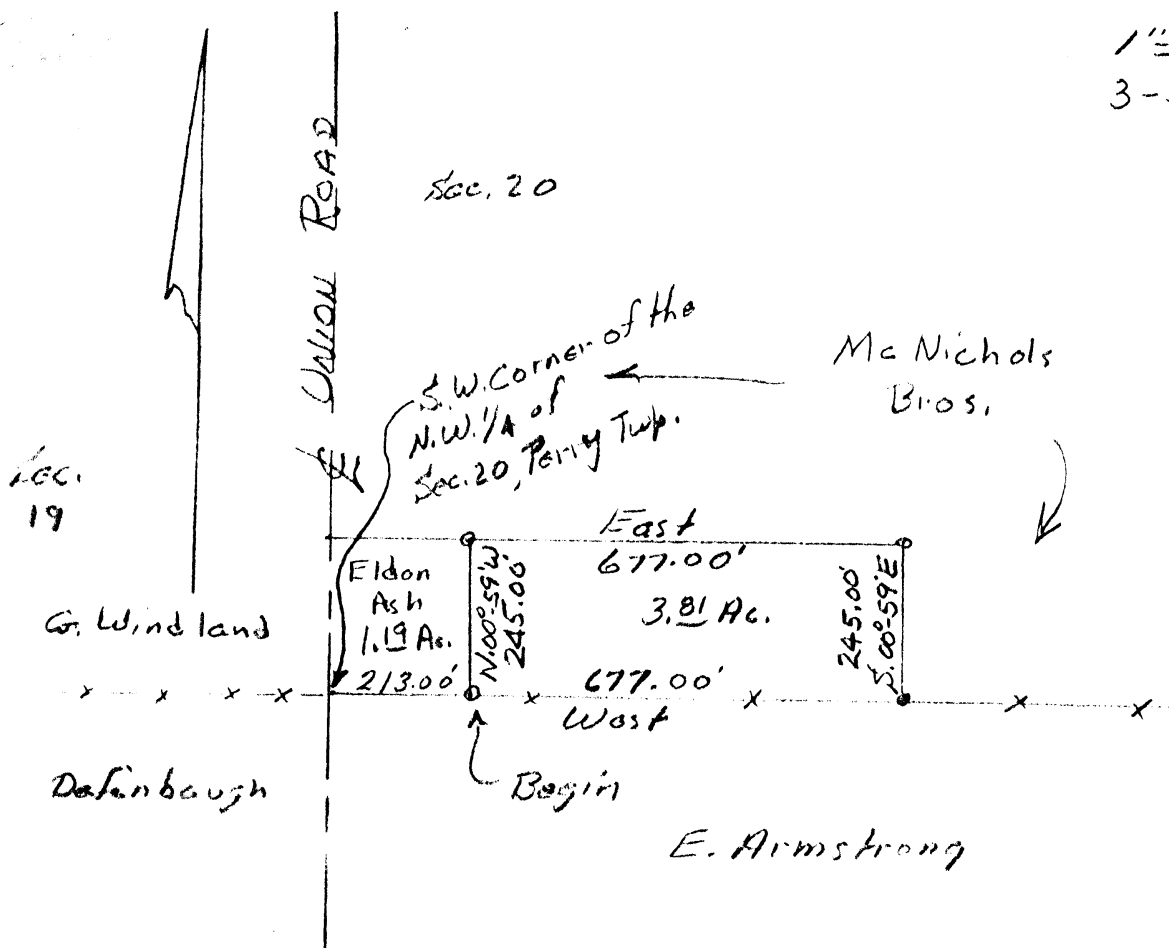 1"=
3-
UNION ROAD
Sec. 20
S.W. Corner of the
N.W. 1/4 of
Sec. 20, Perry Twp.
Mc Nichols
Bros.
Sec.
19
East
677.00'
Eldon
Ash
1.19 Ac.
213.00'
N.00°-59'W
245.00'
3.81 Ac.
245.00'
S.00°-59'E
G. Windland
677.00'
West
Begin
Defenbaugh
E. Armstrong